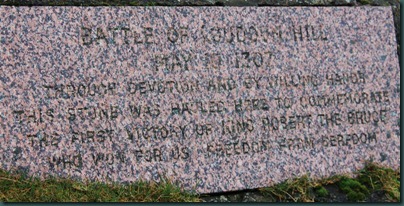 BATTLE OF LOUDOUN HILL
MAY 10 1307
THROUGH DEVOTION AND BY WILLING HANDS
THIS STONE WAS HAULED HERE TO COMMEMORATE
THE FIRST VICTORY OF KING ROBERT THE BRUCE
WHO WON FOR US FREEDOM FROM SERFDOM